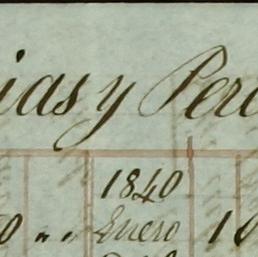 ias y Per
1840
0 " " Enero 1